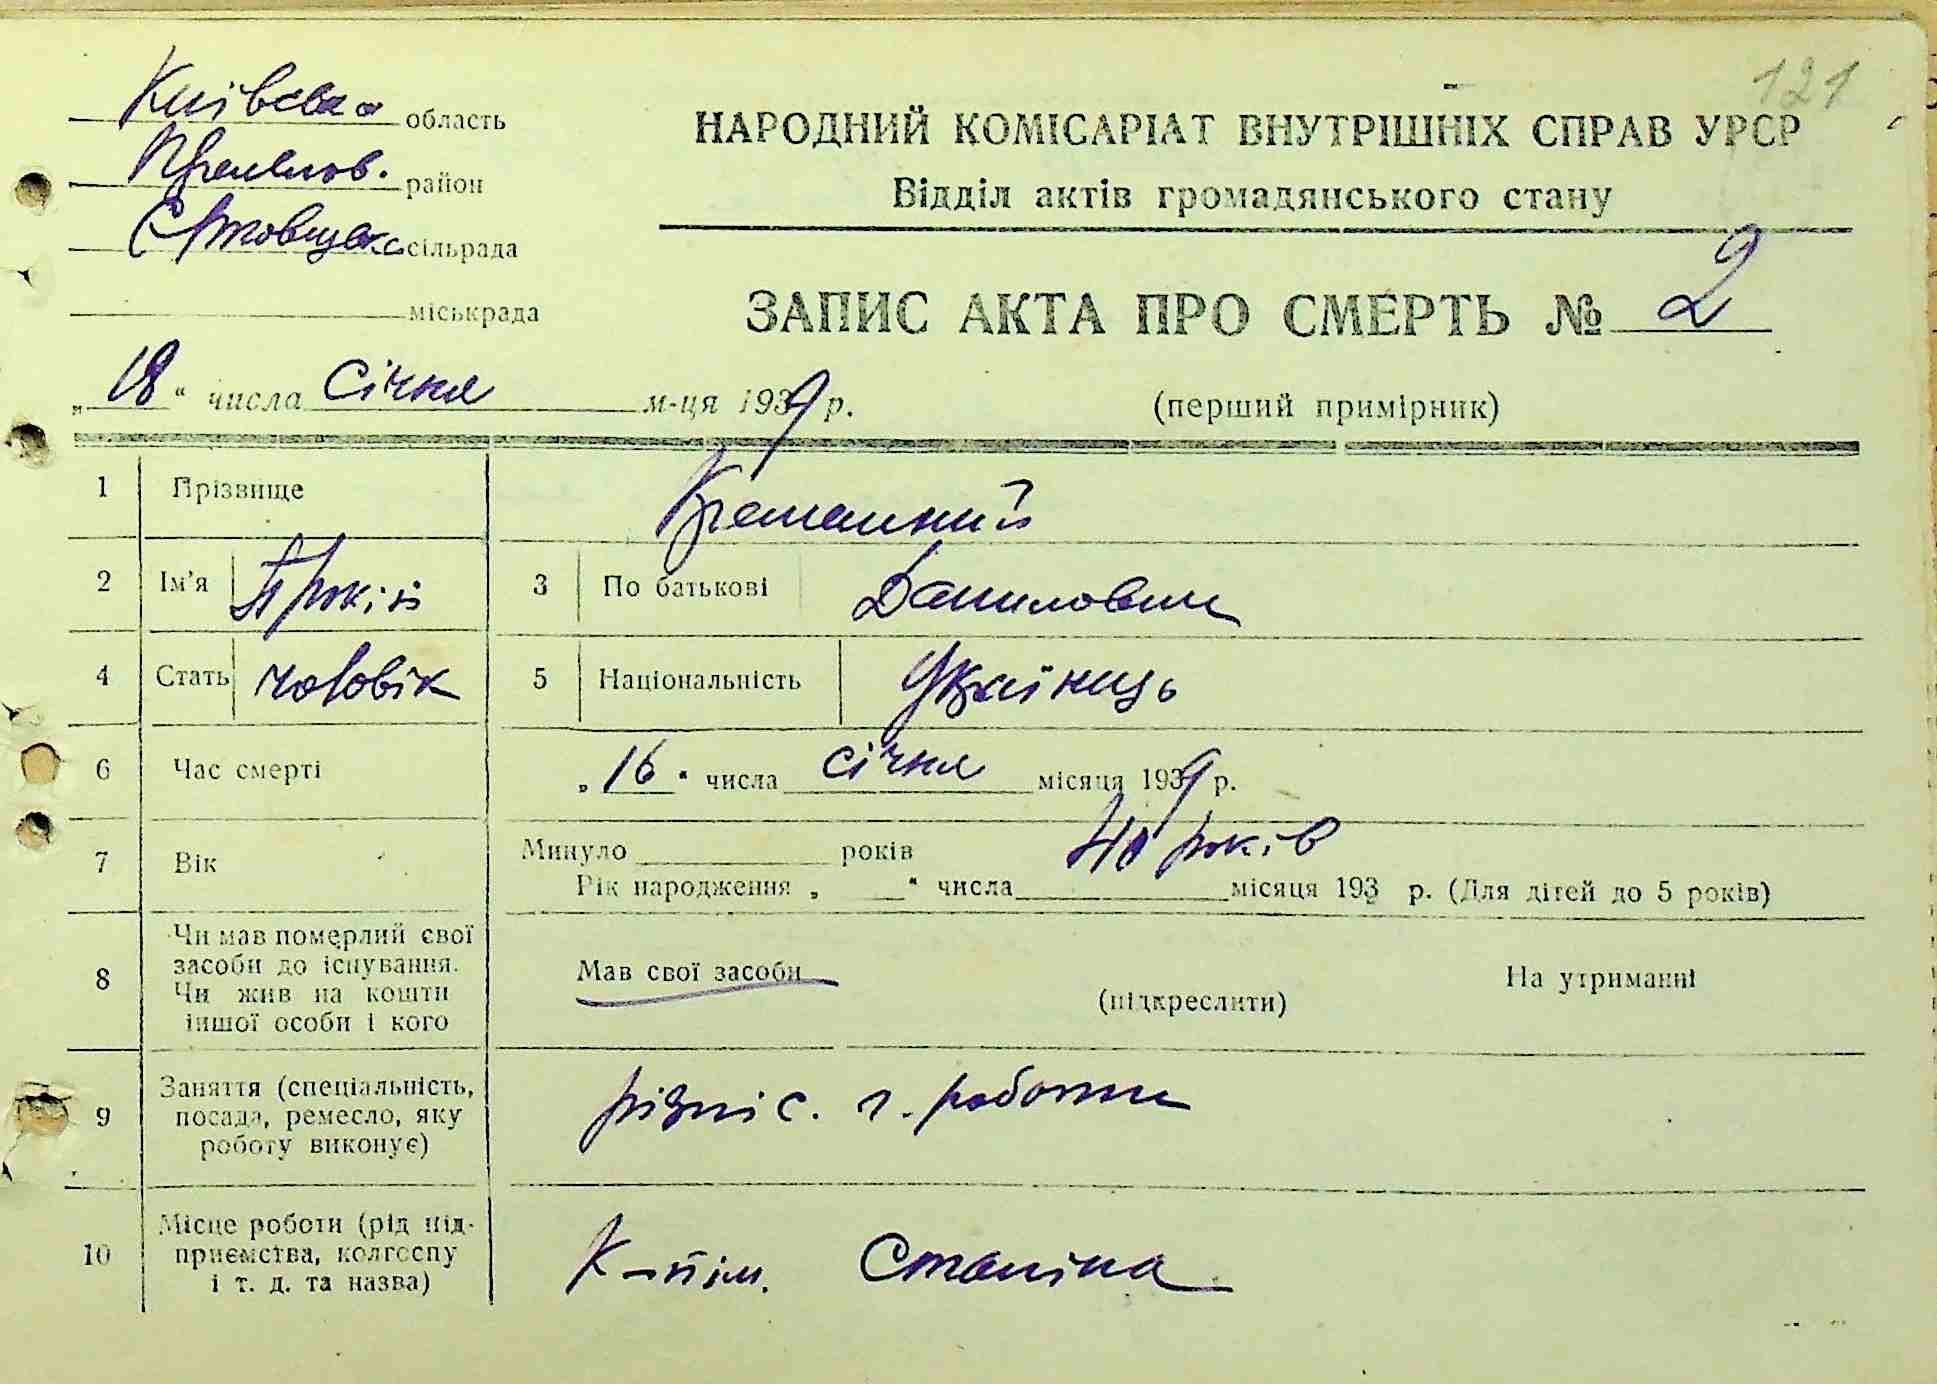 121
Київська область
район
сільрада
міськрада
НАРОДНИЙ КОМІСАРІАТ ВНУТРІШНІХ СПРАВ УРСР
Відділ актів громадянського стану
ЗАПИС АКТА ПРО СМЕРТЬ № 2
„18“ числа Січня м-ця 1939 р.
(перший примірник)
1 Прізвище
2 Ім'я Прокіп 3 По батькові Данилович
4 Стать чоловік 5 Національність Українець
6 Час смерті „16“ числа січня місяця 1939 р.
7 Вік Минуло років 40 років
Рік народження „ “ числа місяця 193 р. (Для дітей до 5 років)
8 Чи мав померлий свої засоби до існування. Чи жив на кошти іншої особи і кого
Мав свої засоби (підкреслити) На утриманні
9 Заняття (спеціальність, посада, ремесло, яку роботу виконує)
різні с. г. роботи
10 Місце роботи (рід підприємства, колгоспу і т. д. та назва)
К-п ім. Сталіна